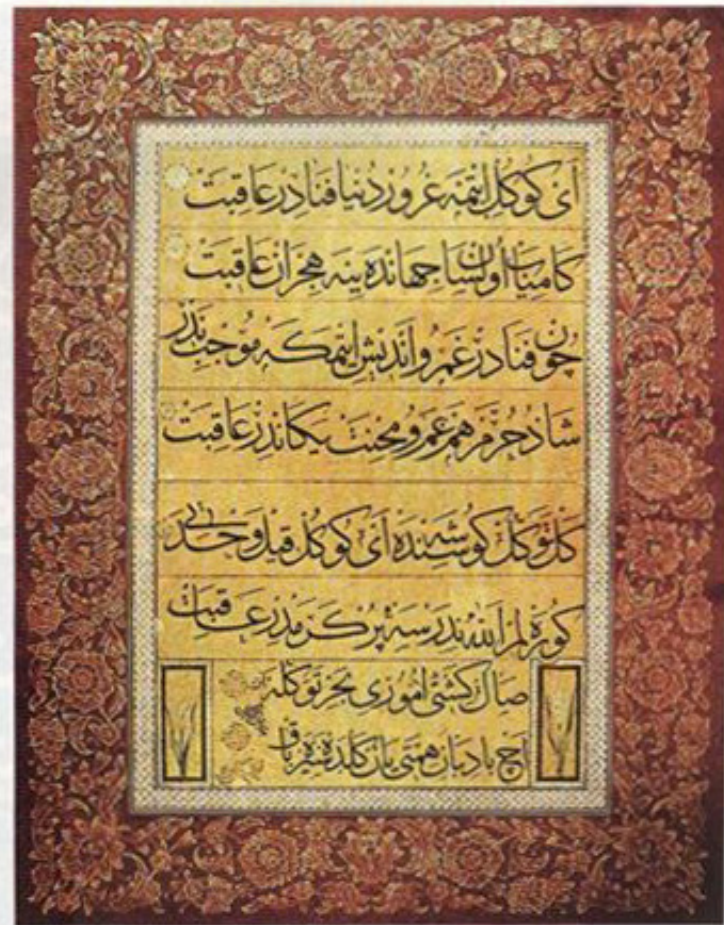 آی كوكل ايتمه غرور دنيا فنادر عاقبت
كامياب اولسان جهانده ينه هجران عاقبت
چون فنادر غم و انديش ايتمكه موجب ندر
شاد خرم هم غم و محنت يكاندر عاقبت
كل توكل كوشه سنده آی كوكل قيل
كوره لم الله ندر عاقبت
صال كشتی اموری بحر توكله
آچ بادبان همتی باق